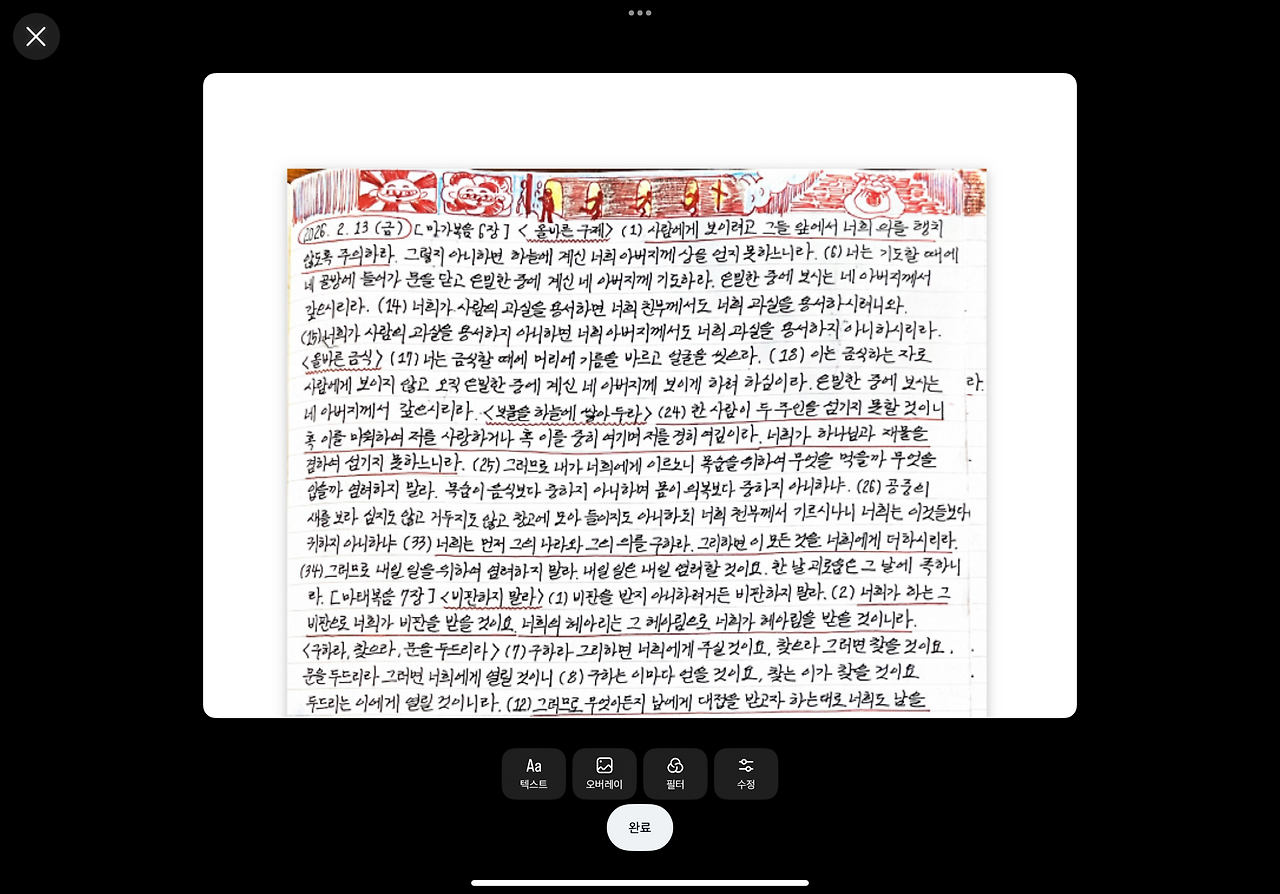 2026. 2. 13 (금) [마가복음 6장] <올바른 구제> (1) 사람에게 보이려고 그들 앞에서 너희 의를 행치
않도록 주의하라. 그렇지 아니하면 하늘에 계신 너희 아버지께 상을 얻지 못하느니라. (6) 너는 기도할 때에
네 골방에 들어가 문을 닫고 은밀한 중에 계신 네 아버지께 기도하라. 은밀한 중에 보시는 네 아버지께서
갚으시리라. (14) 너희가 사람의 과실을 용서하면 너희 천부께서도 너희 과실을 용서하시려니와.
(15) 너희가 사람의 과실을 용서하지 아니하면 너희 아버지께서도 너희 과실을 용서하지 아니하시리라.
<올바른 금식> (17) 너는 금식할 때에 머리에 기름을 바르고 얼굴을 씻으라. (18) 이는 금식하는 자로
사람에게 보이지 않고 오직 은밀한 중에 계신 네 아버지께 보이게 하려 하심이라. 은밀한 중에 보시는 라.
네 아버지께서 갚으시리라. <보물을 하늘에 쌓아 두라> (24) 한 사람이 두 주인을 섬기지 못할 것이니
혹 이를 미워하여 저를 사랑하거나 혹 이를 중히 여기며 저를 경히 여김이라. 너희가 하나님과 재물을
겸하여 섬기지 못하느니라. (25) 그러므로 내가 너희에게 이르노니 목숨을 위하여 무엇을 먹을까 무엇을
입을까 염려하지 말라. 목숨이 음식보다 중하지 아니하며 몸이 의복보다 중하지 아니하냐. (26) 공중의
새를 보라 심지도 않고 거두지도 않고 창고에 모아 들이지도 아니하되 너희 천부께서 기르시나니 너희는 이것들보다
귀하지 아니하냐 (33) 너희는 먼저 그의 나라와 그의 의를 구하라. 그리하면 이 모든 것을 너희에게 더하시리라.
(34) 그러므로 내일 일을 위하여 염려하지 말라. 내일 일은 내일 염려할 것이요. 한 날 괴로움은 그 날에 족하니
라. [마태복음 7장] <비판하지 말라> (1) 비판을 받지 아니하려거든 비판하지 말라. (2) 너희가 하는 그
비판으로 너희가 비판을 받을 것이요. 너희의 헤아리는 그 헤아림으로 너희가 헤아림을 받을 것이니라.
<구하라, 찾으라, 문을 두드리라> (7) 구하라 그리하면 너희에게 주실 것이요, 찾으라 그러면 찾을 것이요,
문을 두드리라 그러면 너희에게 열릴 것이니 (8) 구하는 이마다 얻을 것이요, 찾는 이가 찾을 것이요
두드리는 이에게 열릴 것이니라. (12) 그러므로 무엇이든지 남에게 대접을 받고자 하는대로 너희도 남을
Aa
텍스트
오버레이
필터
수정
완료